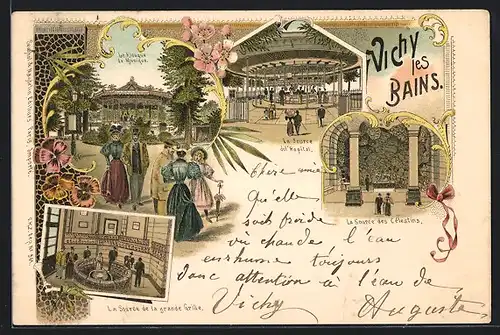 Vichy
les
BAINS.
Le Kiosque
de Musique.
La Source
de l'Hôpital.
La Source des Célestins.
La Source de la grande Grille.
Chère amie
Qu'elle
soit froide
ou chaude l'eau
enrhume toujours
donc attention à l'eau de
Vichy Auguste